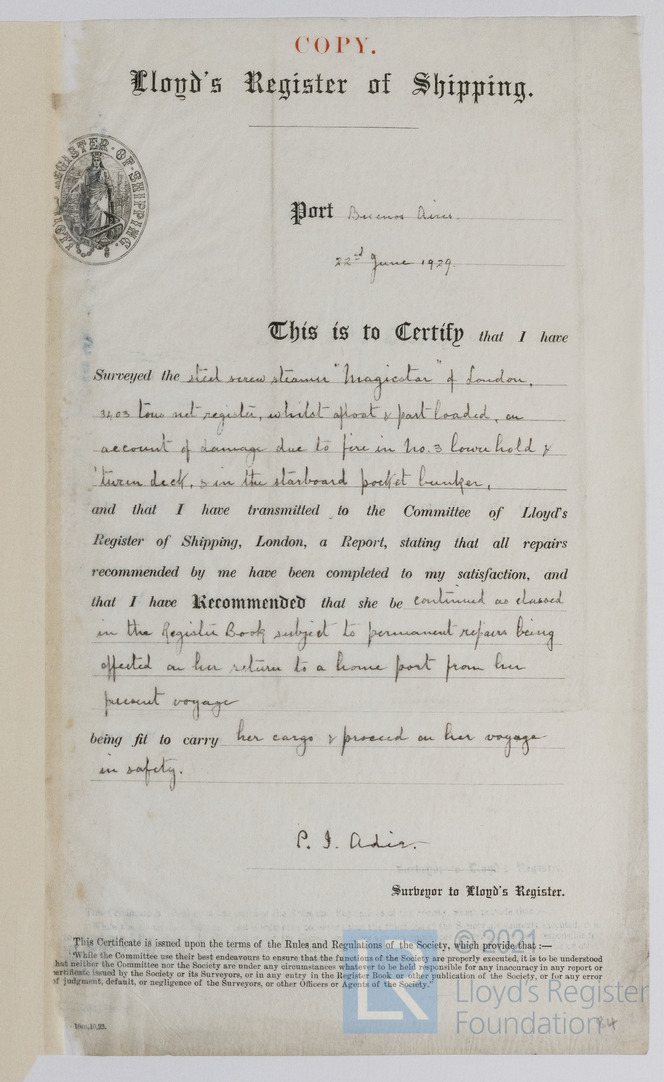 COPY.
Lloyd's Register of Shipping.
LLOYD'S REGISTER OF SHIPPING.
Port Buenos Aires.
22nd June 1929.
This is to Certify that I have
Surveyed the steel screw steamer "Magicstar" of London,
3403 tons net register, whilst afloat & part loaded, on
account of damage due to fire in No. 3 lower hold &
'tween deck, & in the starboard pocket bunker,
and that I have transmitted to the Committee of Lloyd's
Register of Shipping, London, a Report, stating that all repairs
recommended by me have been completed to my satisfaction, and
that I have Recommended that she be continued as classed
in the Register Book subject to permanent repairs being
effected on her return to a home port from her
present voyage
being fit to carry her cargo & proceed on her voyage
in safety.
P. I. Adie.
Surveyor to Lloyd's Register.
This Certificate is issued upon the terms of the Rules and Regulations of the Society, which provide that :—
"While the Committee use their best endeavours to ensure that the functions of the Society are properly executed, it is to be understood
that neither the Committee nor the Society are under any circumstances whatever to be held responsible for any inaccuracy in any report or
certificate issued by the Society or its Surveyors, or in any entry in the Register Book or other publication of the Society, or for any error
of judgment, default, or negligence of the Surveyors, or other Officers or Agents of the Society."
10m,10,23.
© 2021
Lloyd's Register
Foundation